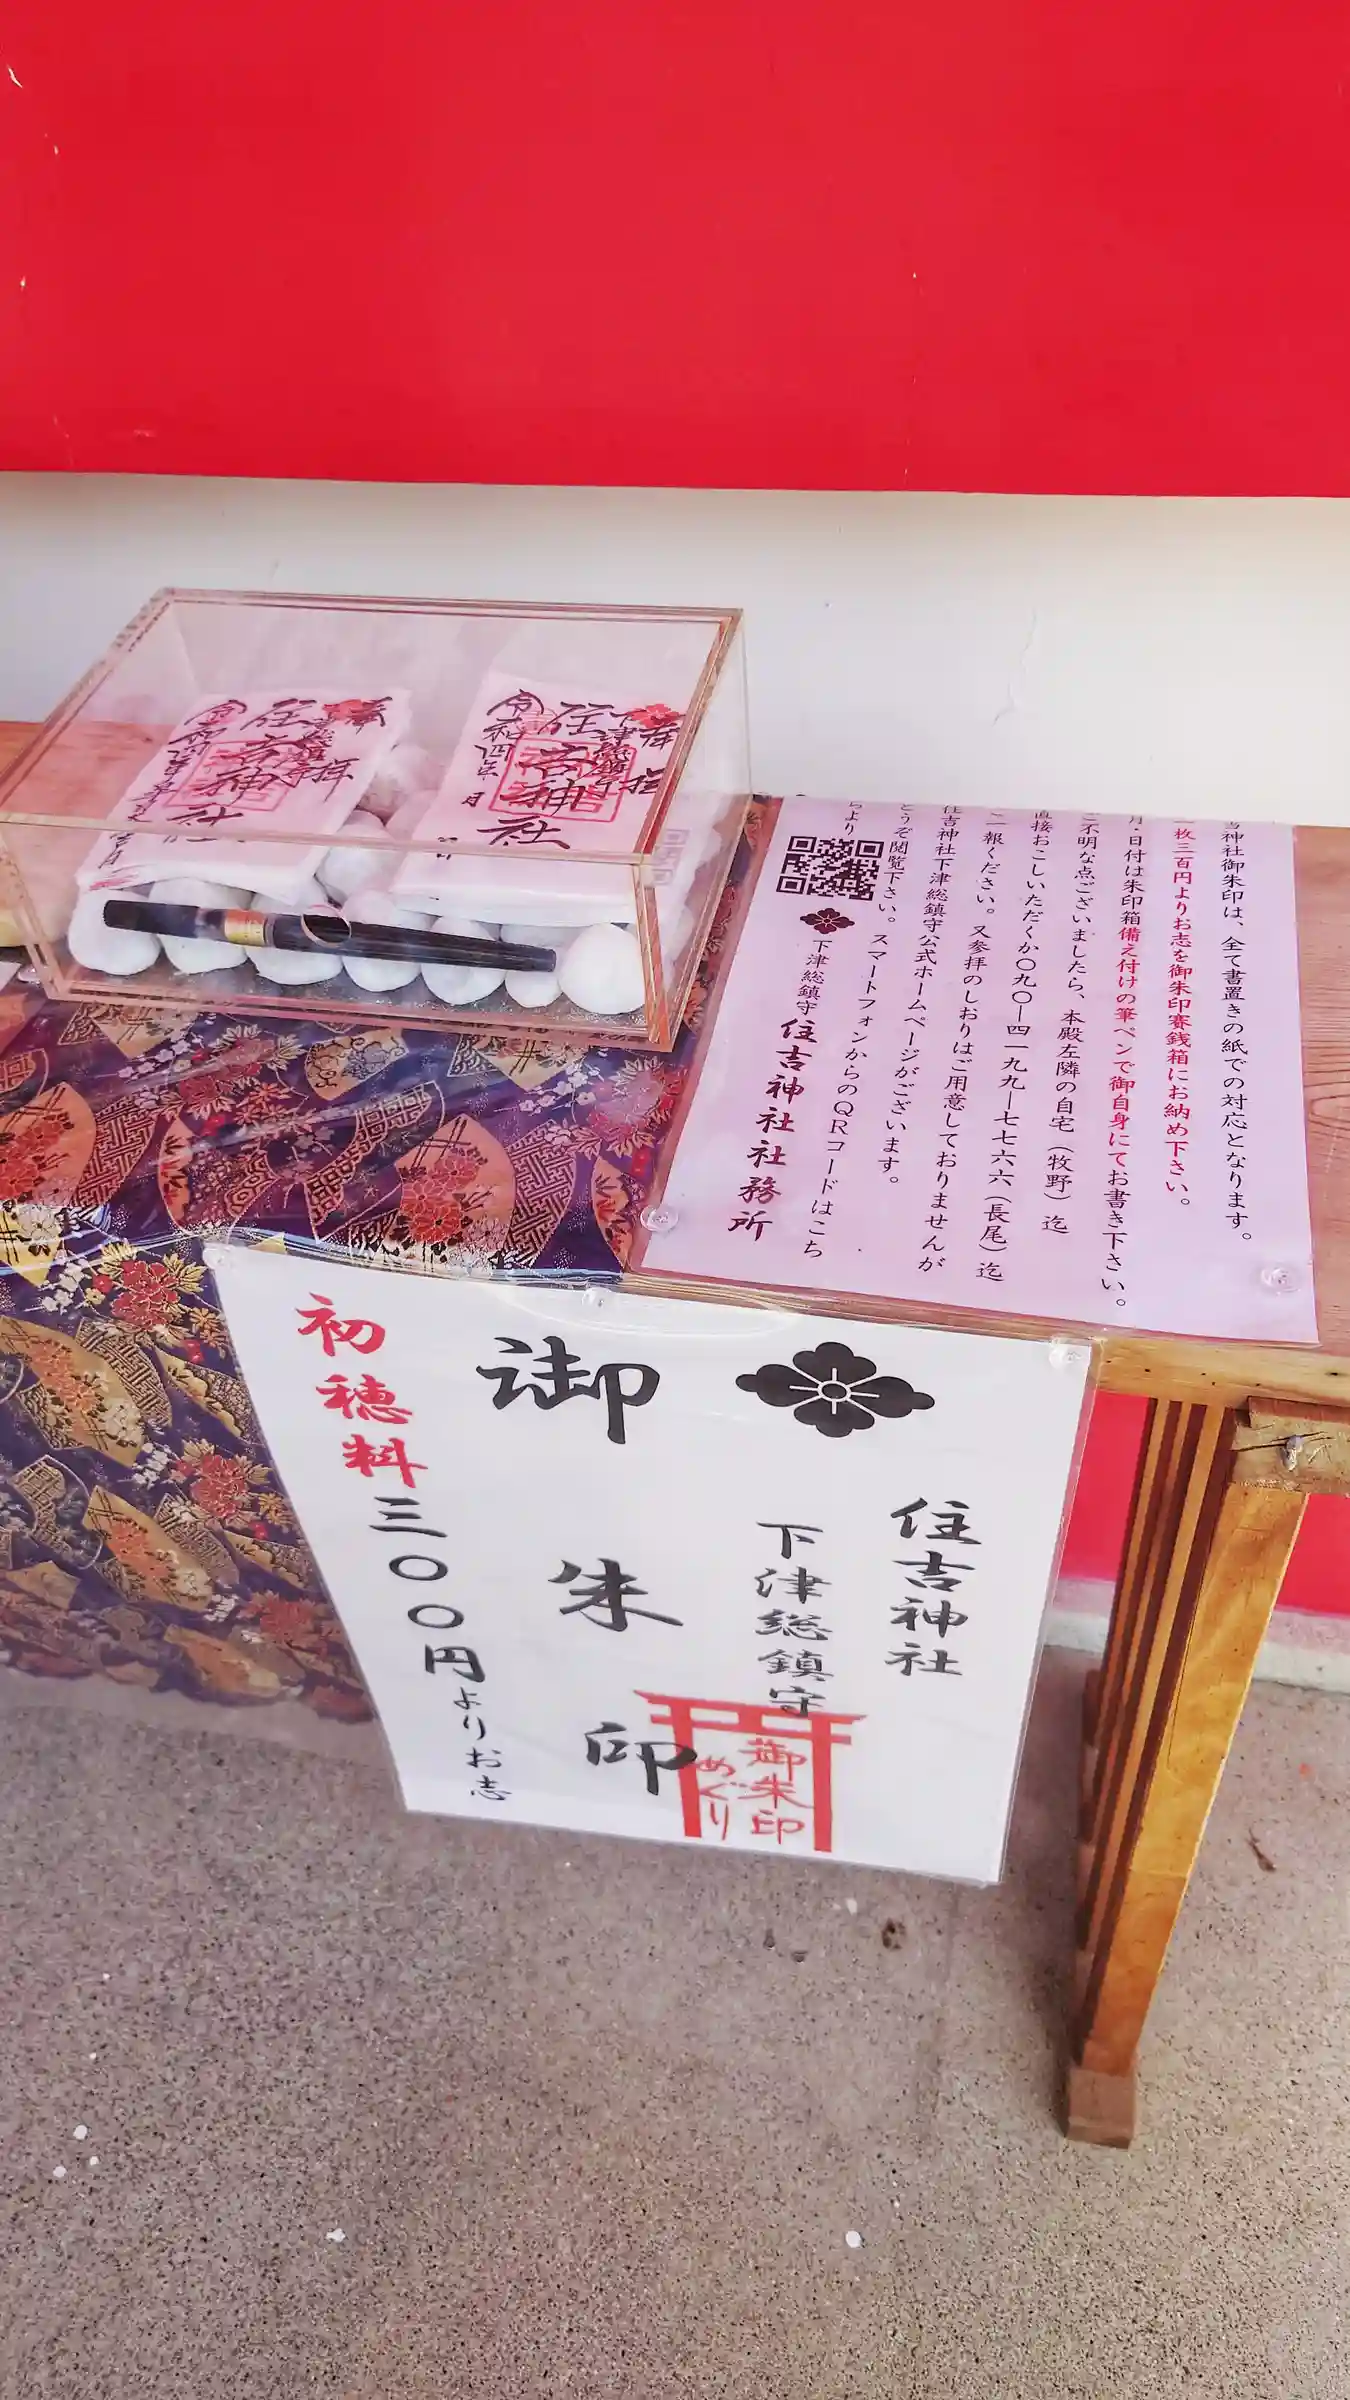 奉拝
下津総鎮守
住吉神社
令和四年 月 日
奉拝
住吉神社
当神社御朱印は、全て書置きの紙での対応となります。
一枚三百円よりお志を御朱印賽銭箱にお納め下さい。
月・日付は朱印箱備え付けの筆ペンで御自身にてお書き下さい。
ご不明な点ございましたら、本殿左隣の自宅（牧野）迄
直接おこしいただくか〇九〇ー四一九九ー七七六六（長尾）迄
ご一報ください。又参拝のしおりはご用意しておりませんが
住吉神社下津総鎮守公式ホームページがございます。
どうぞ閲覧下さい。スマートフォンからのQRコードはこち
らより
下津総鎮守 住吉神社社務所
住吉神社
下津総鎮守
御朱印
初穂料三〇〇円よりお志
御朱印
めぐり